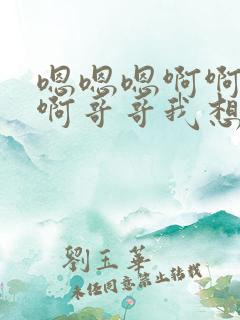 嗯嗯嗯啊啊
啊哥哥我想
劉玉華
未经同意禁止转载